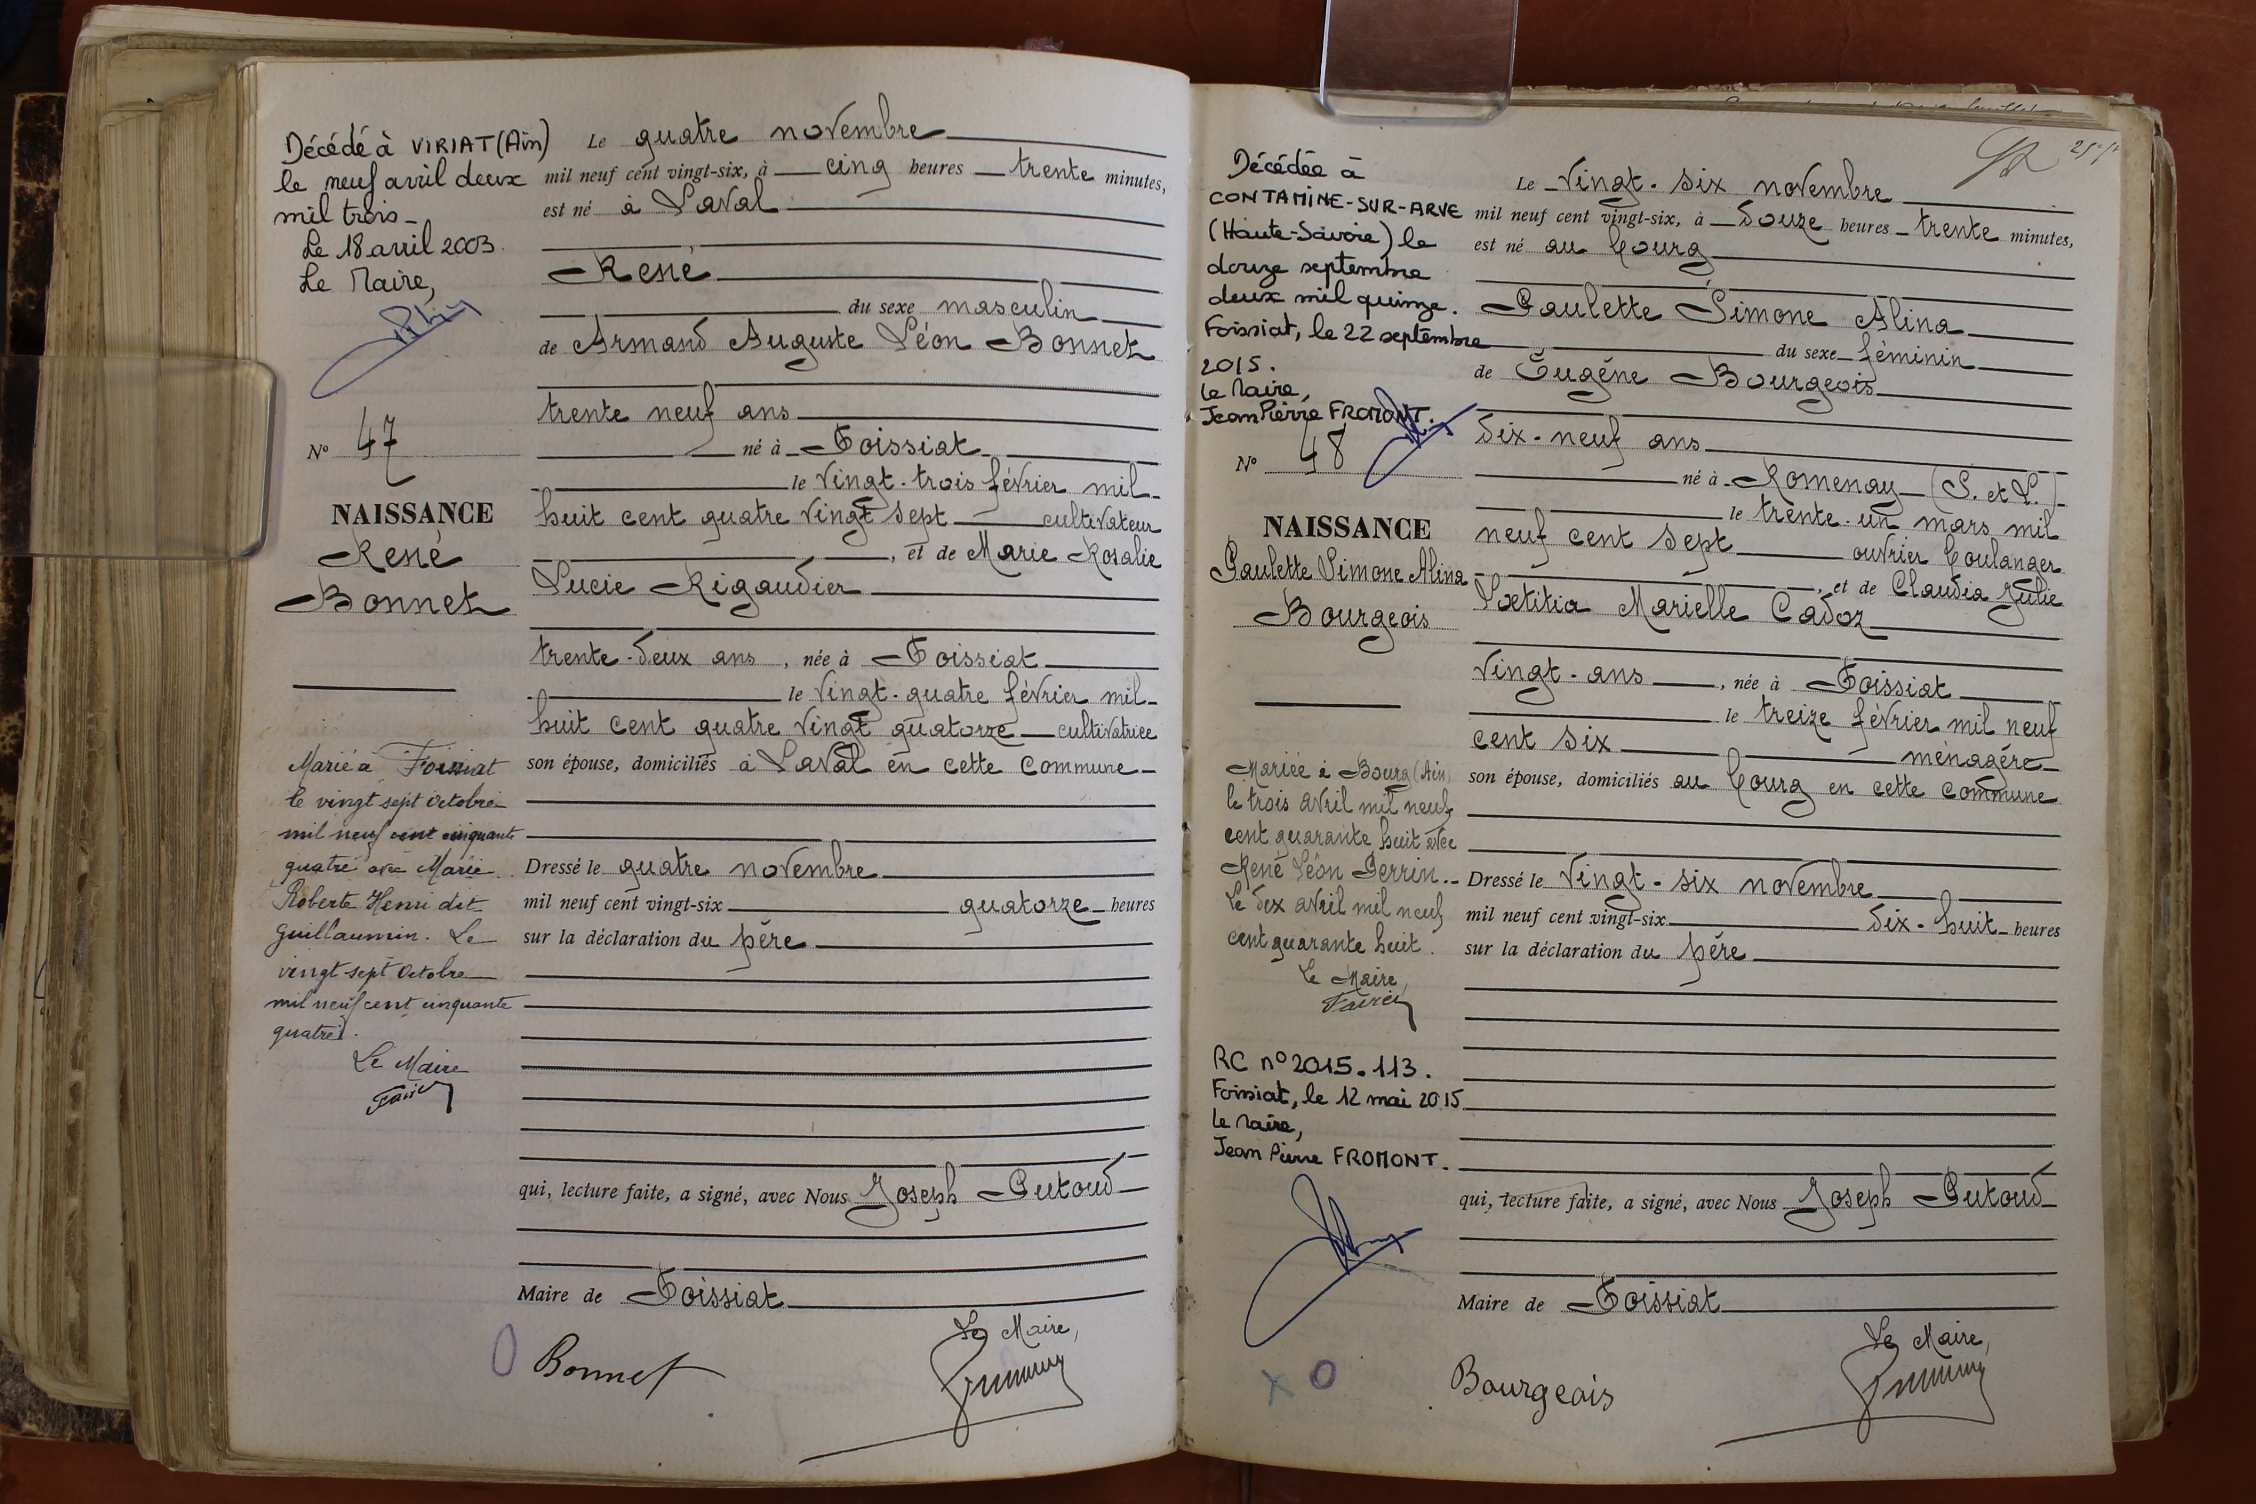 Décédé à VIRIAT (Ain)
le neuf avril deux
mil trois_
Le 18 avril 2003.
Le Maire,
N° 47
NAISSANCE
René
Bonnet
Marié à Foissiat
le vingt sept Octobre
mil neuf cent cinquante
quatre avec Marie
Roberte Henri dit
Guillaumin. Le
vingt sept Octobre
mil neuf cent cinquante
quatre.
Le Maire
Le quatre novembre
mil neuf cent vingt-six, à cinq heures trente minutes,
est né à Laval
René
du sexe masculin
de Armand Auguste Léon Bonnet
trente neuf ans
né à Foissiat
le vingt-trois février mil
huit cent quatre vingt sept cultivateur
, et de Marie Rosalie
Lucie Rigaudier
trente-deux ans , née à Foissiat
le vingt-quatre février mil
huit cent quatre vingt quatorze cultivatrice
son épouse, domiciliés à Laval en cette commune
Dressé le quatre novembre
mil neuf cent vingt-six quatorze heures
sur la déclaration du père
qui, lecture faite, a signé, avec Nous Joseph Putoud
Maire de Foissiat
Le Maire,
Bonnet
Décédée à
CONTAMINE-SUR-ARVE
(Haute-Savoie) le
douze septembre
deux mil quinze.
Foissiat, le 22 septembre
2015.
Le Maire,
Jean Pierre FROMONT.
N° 48
NAISSANCE
Paulette Simone Alina
Bourgeois
Mariée à Bourg (Ain)
le trois avril mil neuf
cent quarante huit avec
René Léon Perrin.-
Le dix avril mil neuf
cent quarante huit.
Le Maire,
RC n° 2015.113.
Foissiat, le 12 mai 2015
Le Maire,
Jean Pierre FROMONT.
Le vingt-six novembre
mil neuf cent vingt-six, à douze heures trente minutes,
est né au bourg
Paulette Simone Alina
du sexe féminin
de Eugène Bourgeois
dix-neuf ans
né à Romenay (S. et L.)
le trente-un mars mil
neuf cent sept ouvrier boulanger
, et de Claudia Julie
Lœtitia Marielle Cadoz
vingt-ans , née à Foissiat
le treize février mil neuf
cent six ménagère
son épouse, domiciliés au bourg en cette commune
Dressé le vingt-six novembre
mil neuf cent vingt-six dix-huit heures
sur la déclaration du père
qui, lecture faite, a signé, avec Nous Joseph Putoud
Maire de Foissiat
Le Maire,
Bourgeois